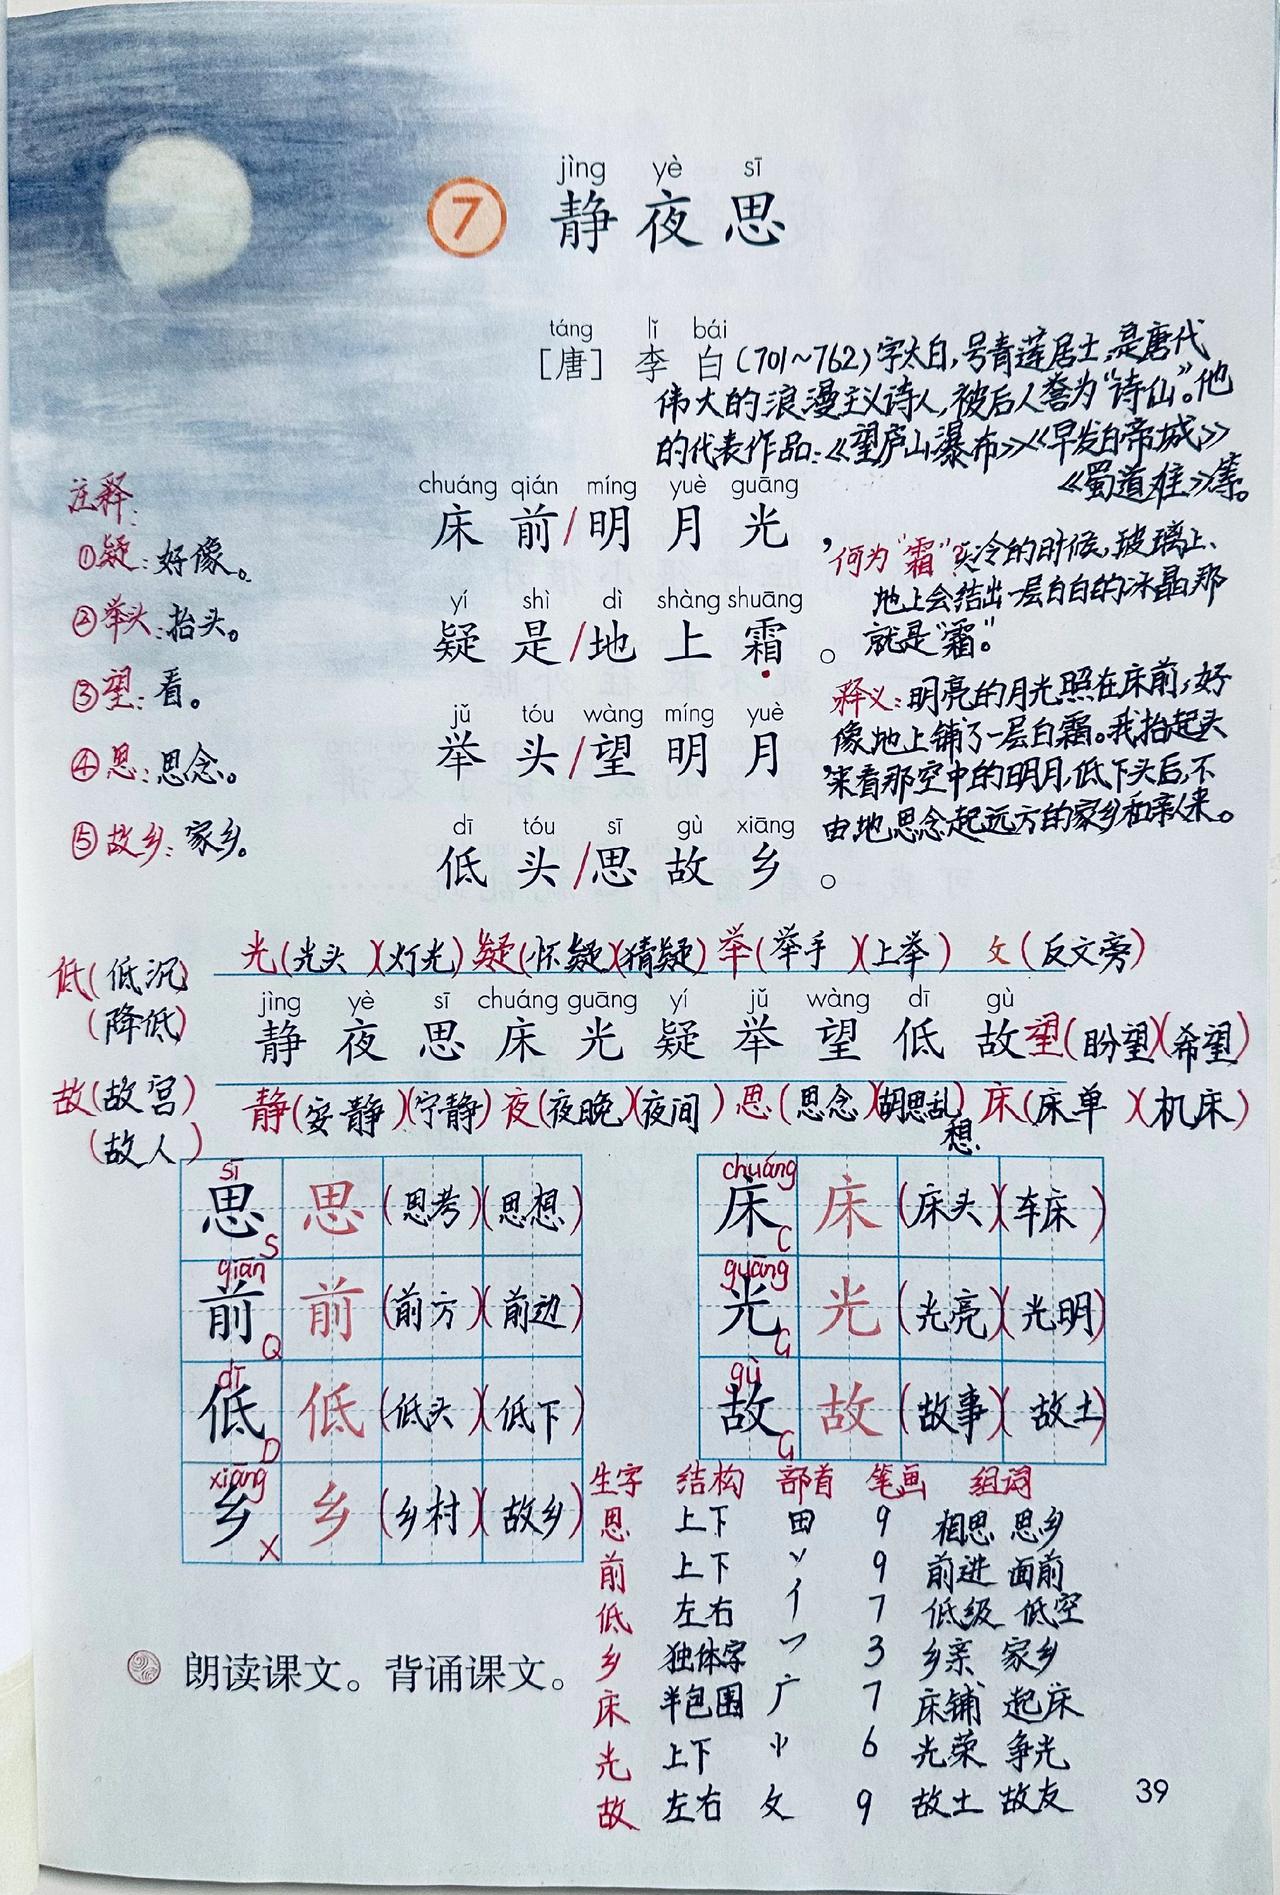 jìng yè sī
7 静夜思
táng lǐ bái
[唐] 李 白(701~762)字太白,号青莲居士,是唐代
伟大的浪漫主义诗人,被后人誉为“诗仙”。他
的代表作品:《望庐山瀑布》《早发白帝城》
《蜀道难》等。
注释:
①疑:好像。
②举头:抬头。
③望:看。
④思:思念。
⑤故乡:家乡。
chuáng qián míng yuè guāng
床前/明月光,
yí shì dì shàng shuāng
疑是/地上霜。
jǔ tóu wàng míng yuè
举头/望明月,
dī tóu sī gù xiāng
低头/思故乡。
何为“霜”?天冷的时候,玻璃上、
地上会结出一层白白的冰晶那
就是“霜”。
释义:明亮的月光照在床前,好
像地上铺了一层白霜。我抬起头
来看那空中的明月,低下头后,不
由地思念起远方的家乡和亲人来。
光(光头)(灯光)疑(怀疑)(猜疑)举(举手)(上举) 攵(反文旁)
低(低沉)
(降低)
jìng yè sī chuáng guāng yí jǔ wàng dī gù
静夜思床光疑举望低故 望(盼望)(希望)
故(故宫)
(故人)
静(安静)(宁静)夜(夜晚)(夜间)思(思念)(胡思乱
想)床(床单)(机床)
sī
思 S 思 (思考)(思想)
qián
前 Q 前 (前方)(前边)
dī
低 D 低 (低头)(低下)
xiāng
乡 X 乡 (乡村)(故乡)
chuáng
床 C 床 (床头)(车床)
guāng
光 G 光 (光亮)(光明)
gù
故 G 故 (故事)(故土)
生字 结构 部首 笔画 组词
思 上下 田 9 相思 思乡
前 上下 丷 9 前进 面前
低 左右 亻 7 低级 低空
乡 独体字 乛 3 乡亲 家乡
床 半包围 广 7 床铺 起床
光 上下 ⺌ 6 光荣 争光
故 左右 攵 9 故土 故友
朗读课文。背诵课文。
39